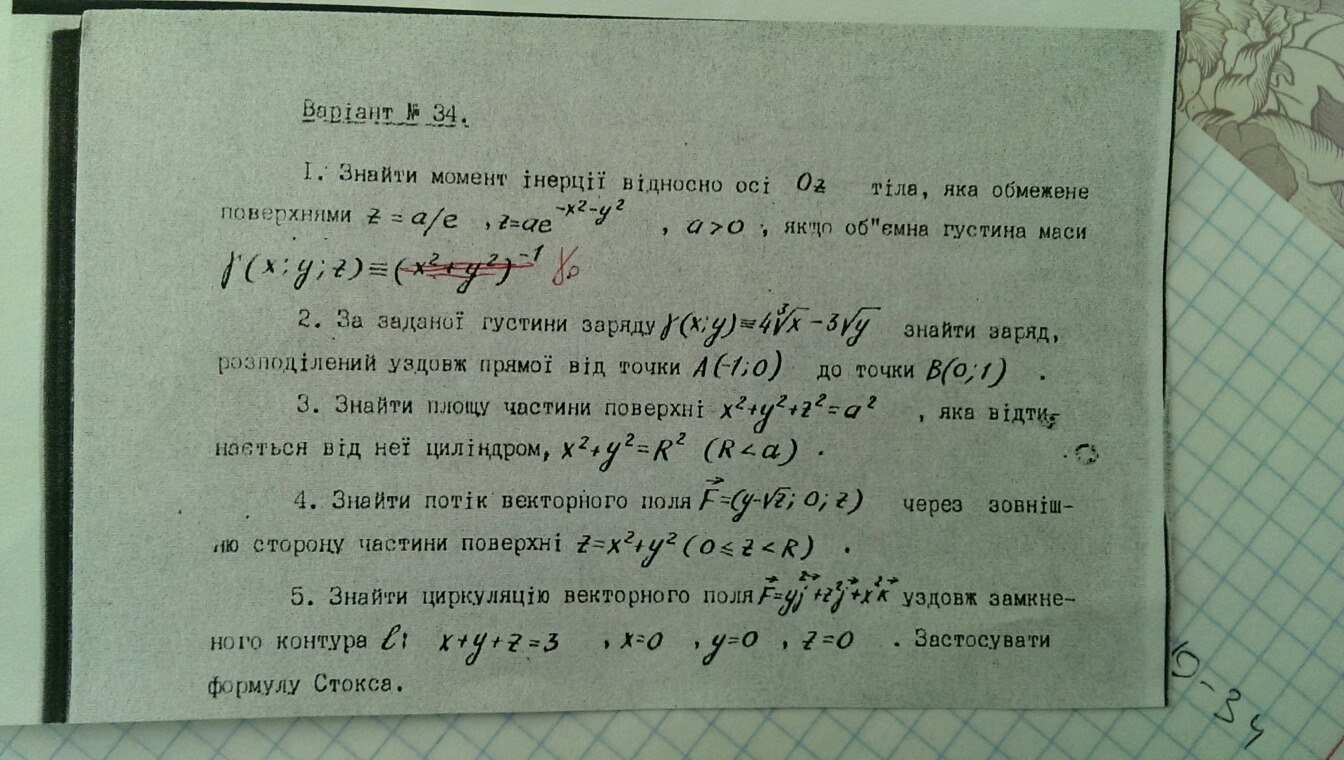 Варіант № 34.
1. Знайти момент інерції відносно осі Oz тіла, яка обмежене
поверхнями z = a/e , z=ae^{-x²-y²} , a>0 , якщо об"ємна густина маси
γ(x;y;z)≡(x²+y²)⁻¹ γ₀
2. За заданої густини заряду γ(x;y)≡4∛x-3√y знайти заряд,
розподілений уздовж прямої від точки A(-1;0) до точки B(0;1) .
3. Знайти площу частини поверхні x²+y²+z²=a² , яка відти-
нається від неї циліндром, x²+y²=R² (R<a) .
4. Знайти потік векторного поля F⃗=(y-√z; 0; z) через зовніш-
ню сторону частини поверхні z=x²+y² (0≤z<R) .
5. Знайти циркуляцію векторного поля F⃗=y²j⃗+z²j⃗+x²k⃗ уздовж замкне-
ного контура ℓ: x+y+z=3 , x=0 , y=0 , z=0 . Застосувати
формулу Стокса.
10-34